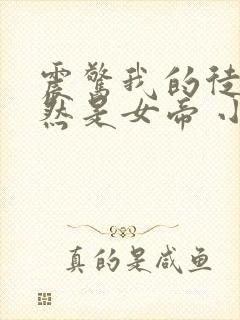 震惊我的徒
然是女帝 小
真的是咸鱼